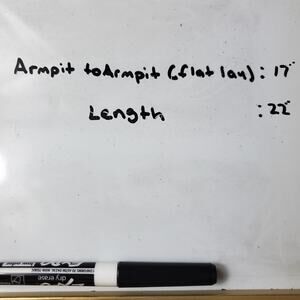 Armpit to Armpit (flat lay) : 17"
Length : 22"
dry erase